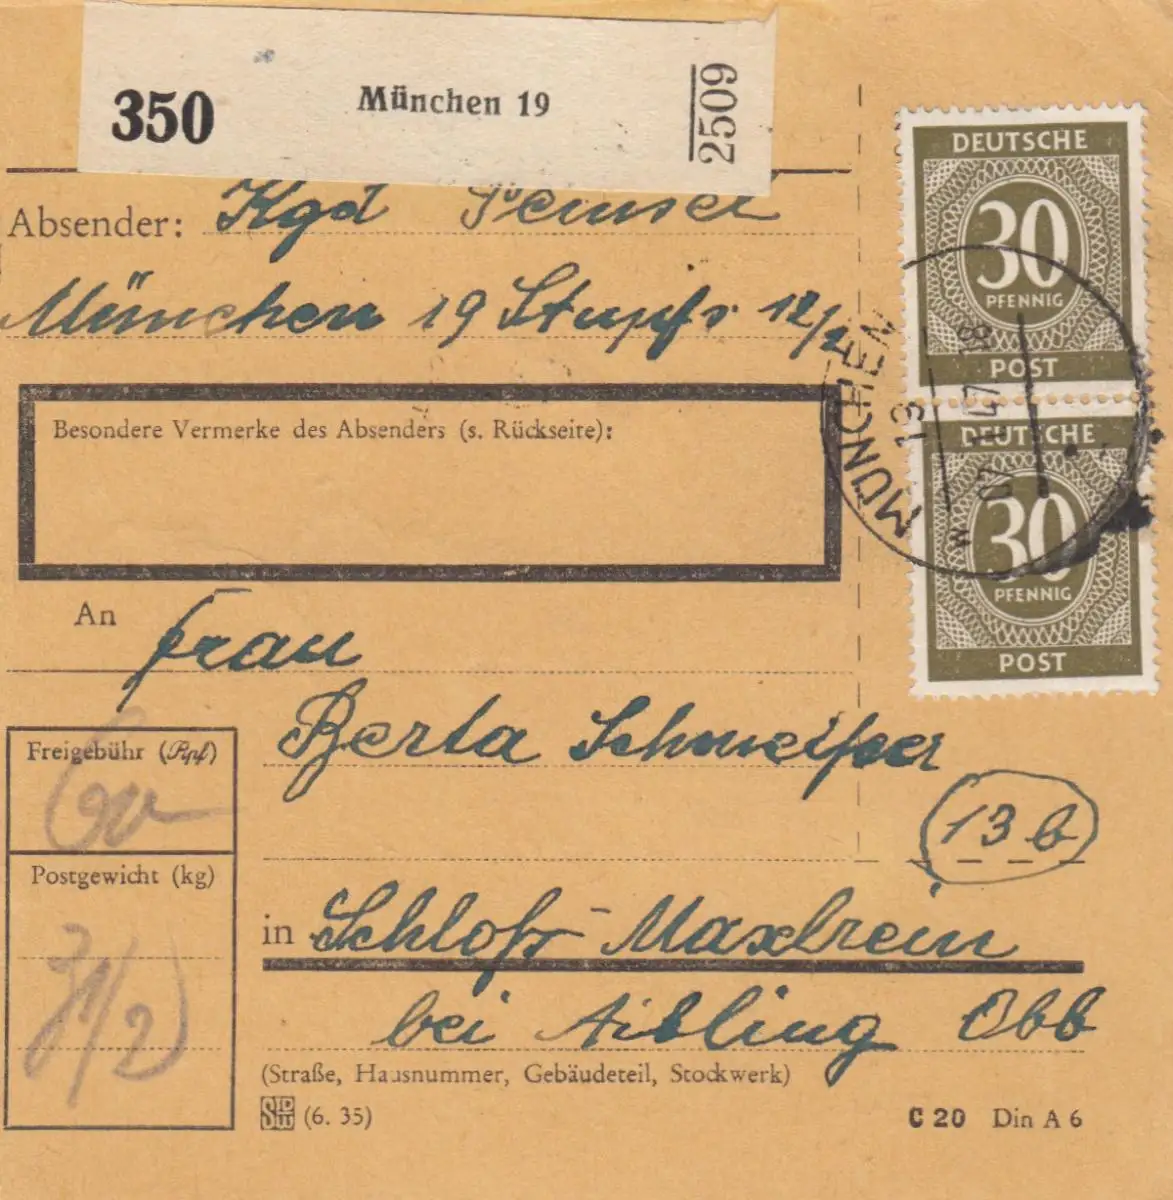 350 München 19 2509
Absender: Kgd
München 19 Stupfs 12/2
Besondere Vermerke des Absenders (s. Rückseite):
An Frau
Berta Schmeißer
13 b
in Schloß-Maxlrein
bei Aibling Obb
(Straße, Hausnummer, Gebäudeteil, Stockwerk)
(6. 35)
C 20 Din A 6
Freigebühr (Rpf)
60
Postgewicht (kg)
7 1/2
DEUTSCHE
30
PFENNIG
POST
DEUTSCHE
30
PFENNIG
POST
MÜNCHEN
19
w